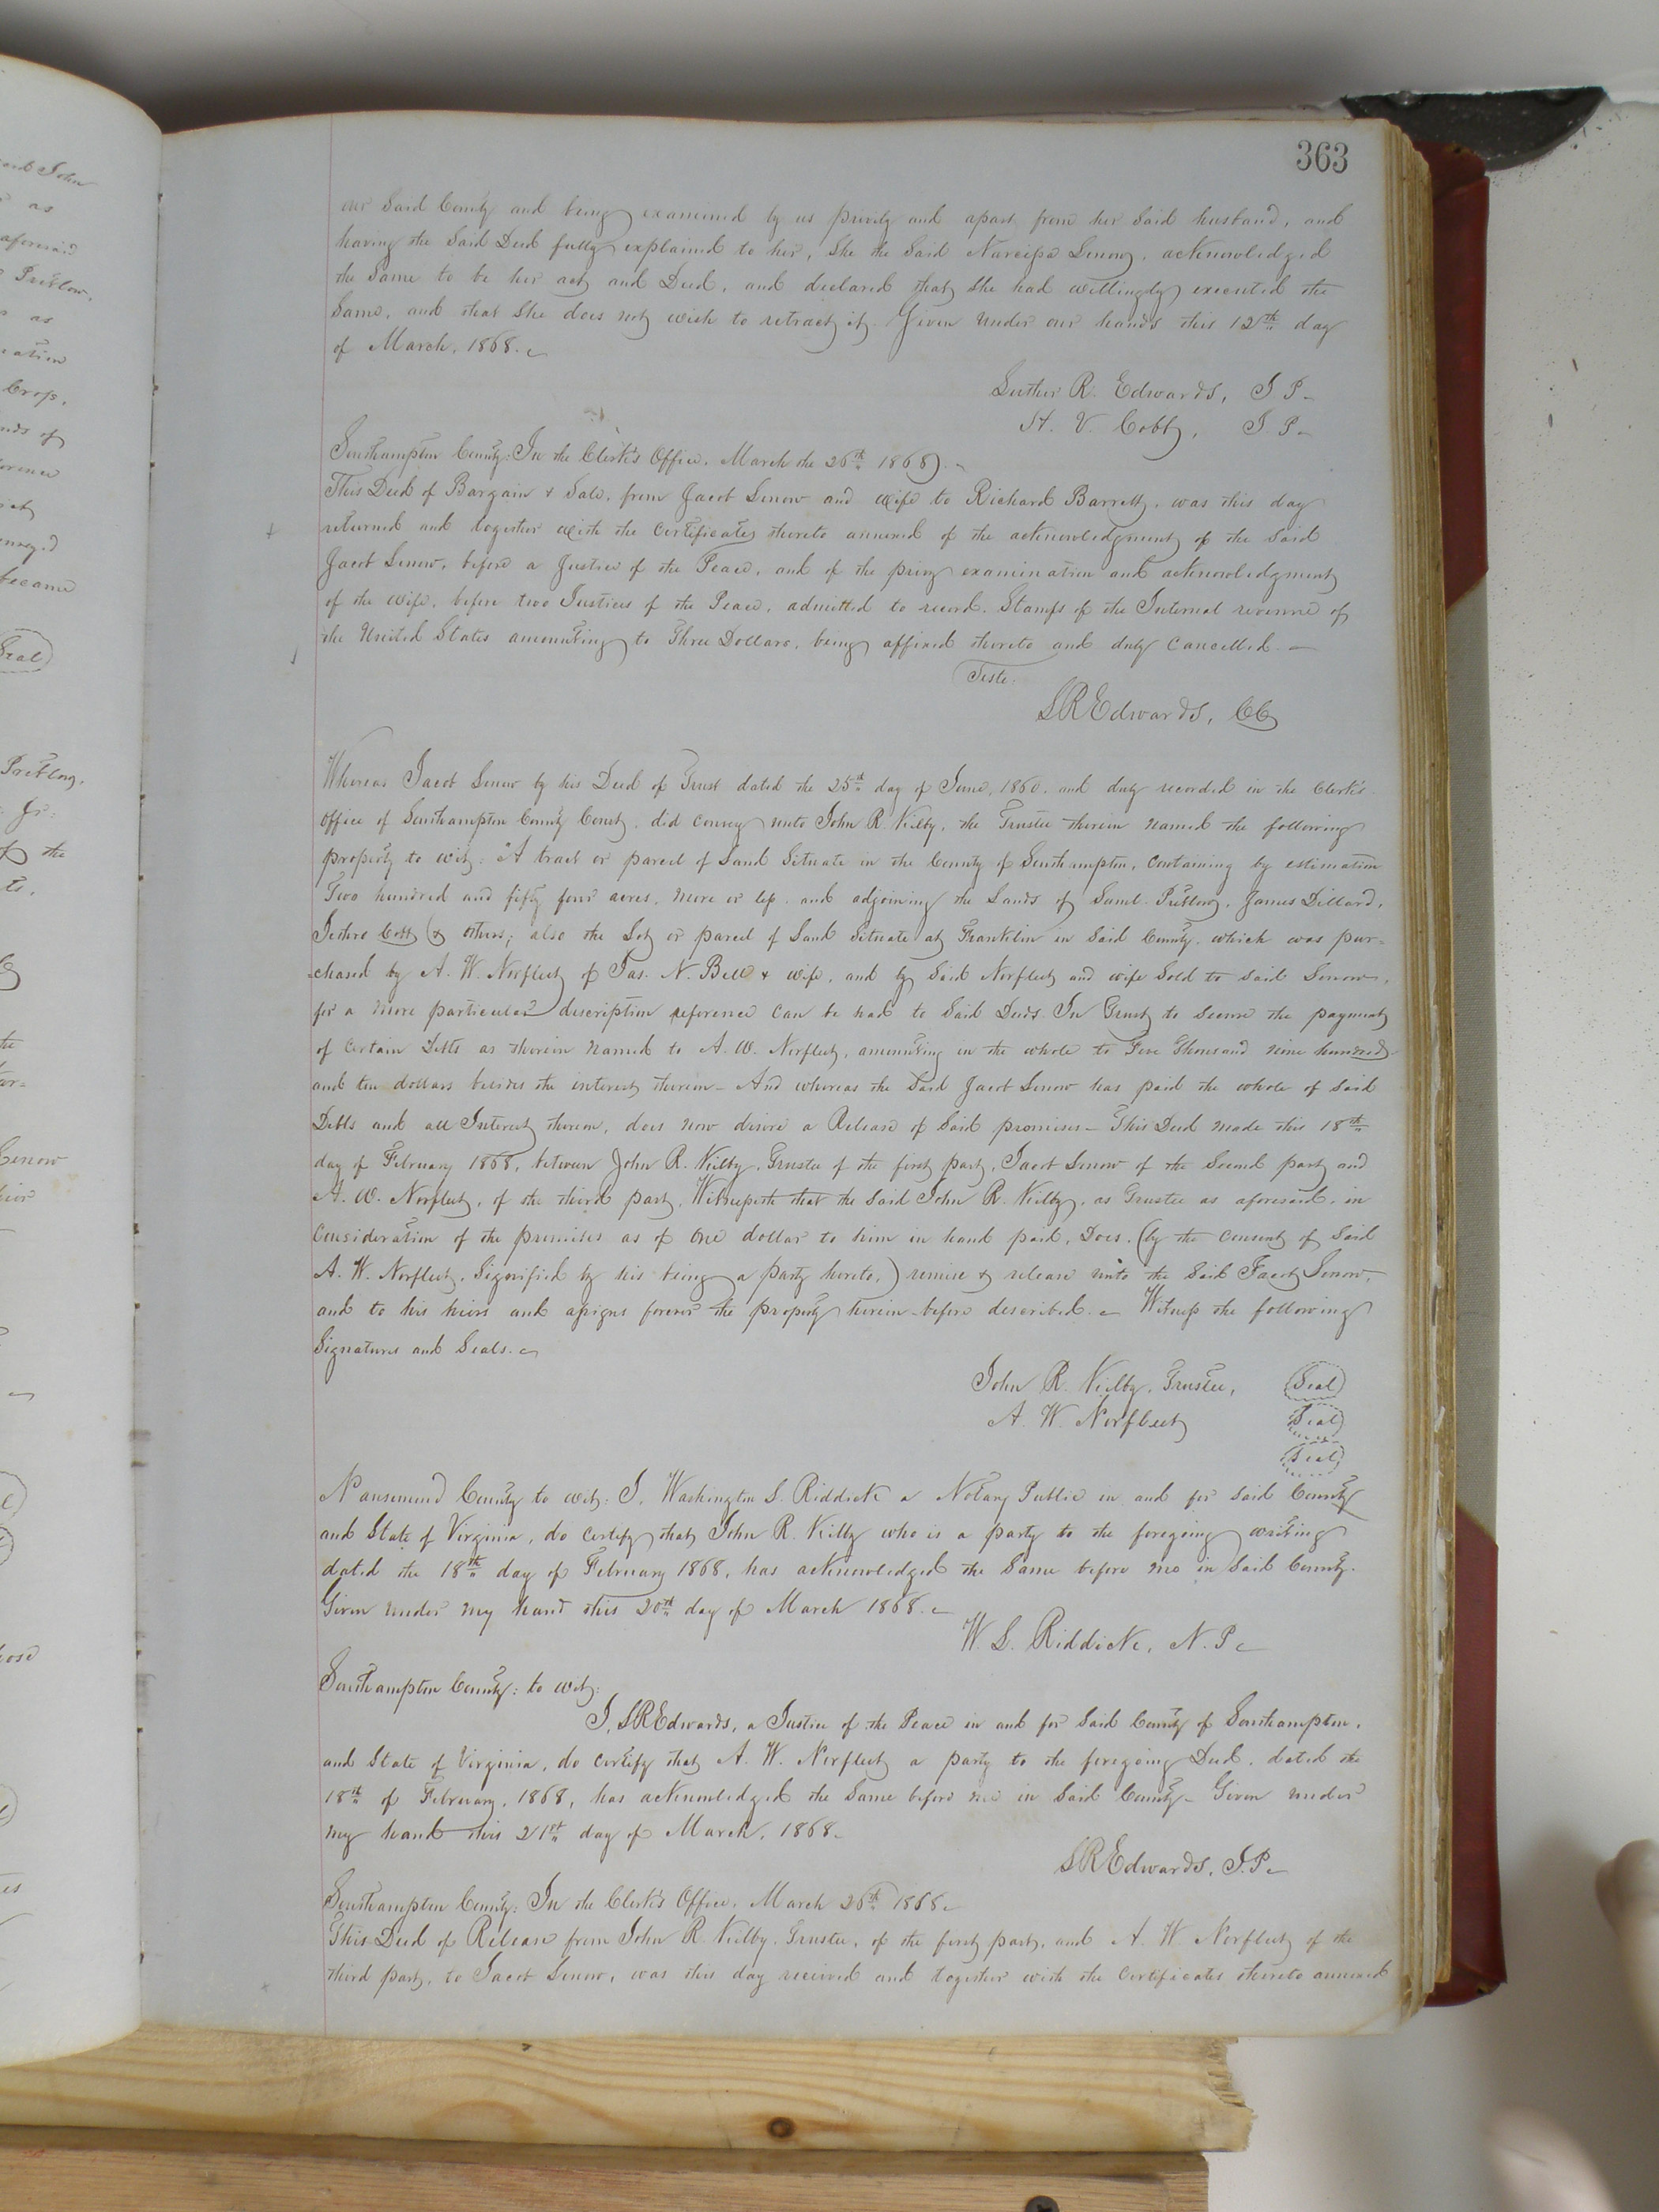 363
our Said County and being examined by us privily and apart from her Said husband, and
having the Said Deed fully explained to her, She the Said Narcissa Lenow, acknowledged
the Same to be her act and Deed, and declared that She had willingly executed the
Same, and that She does not wish to retract it. Given under our hands this 12th day
of March, 1868.
Luther R. Edwards, J P
H. V. Cobb, J. P
Southampton County: In the Clerk's Office, March the 26th 1868
This Deed of Bargain & Sale, from Jacob Lenow and wife to Richard Barrett, was this day
returned and together with the Certificates thereto annexed of the acknowledgment of the Said
Jacob Lenow, before a Justice of the Peace, and of the privy examination and acknowledgment
of the wife, before two Justices of the Peace, admitted to record. Stamps of the Internal revenue of
the United States amounting to Three Dollars, being affixed thereto and duly Cancelled.
Teste:
L R Edwards, CC
Whereas Jacob Lenow by his Deed of Trust dated the 25th day of June, 1860, and duly recorded in the Clerk's
Office of Southampton County Court, did convey unto John R. Kilby, the Trustee therein named the following
property to wit: "A tract or parcel of Land Situate in the County of Southampton, Containing by estimation
Two hundred and fifty four acres, more or less, and adjoining the Lands of Saml. Pretlow, James Dillard,
Jethro Cobb (& others; also the Lot or parcel of Land Situate at Franklin in Said County, which was pur=
=chased by A. W. Norfleet of Jas. N. Bell & wife, and by Said Norfleet and wife Sold to Said Lenow,
for a more particular description reference can be had to Said Deeds. In Trust to Secure the payment
of Certain Debts as therein Named to A. W. Norfleet, amounting in the whole to Five Thousand nine hundred
and ten dollars besides the interest thereon - And whereas the Said Jacob Lenow has paid the whole of Said
Debts and all Interest thereon, does now desire a Release of Said premises - This Deed made this 18th
day of February 1868, between John R. Kilby, Trustee of the first part, Jacob Lenow of the Second part and
A. W. Norfleet, of the third part, Witnesseth that the Said John R. Kilby, as Trustee as aforesaid, in
Consideration of the premises as of One dollar to him in hand paid, Does, (by the Consent of Said
A. W. Norfleet, Signified by his being a party hereto,) remise & release unto the Said Jacob Lenow,
and to his heirs and assigns forever the property herein-before described. Witness the following
Signatures and Seals.
John R. Kilby, Trustee, (Seal)
A. W. Norfleet (Seal)
(Seal)
Nansemond County to wit: I, Washington L. Riddick a Notary Public in and for Said County
and State of Virginia, do Certify that John R. Kilby who is a party to the foregoing writing
dated the 18th day of February 1868, has acknowledged the Same before me in Said County.
Given under my hand this 20th day of March 1868.
W. L. Riddick, N. P
Southampton County: to wit:
I, L R Edwards, a Justice of the Peace in and for Said County of Southampton,
and State of Virginia, do Certify that A. W. Norfleet a party to the foregoing Deed, dated the
18th of February, 1868, has acknowledged the Same before me in Said County - Given under
my hand this 21st day of March, 1868.
L R Edwards, J. P
Southampton County: In the Clerk's Office, March 26th 1868
This Deed of Release from John R. Kilby, Trustee, of the first part, and A. W. Norfleet of the
third part, to Jacob Lenow, was this day received and together with the Certificates thereto annexed